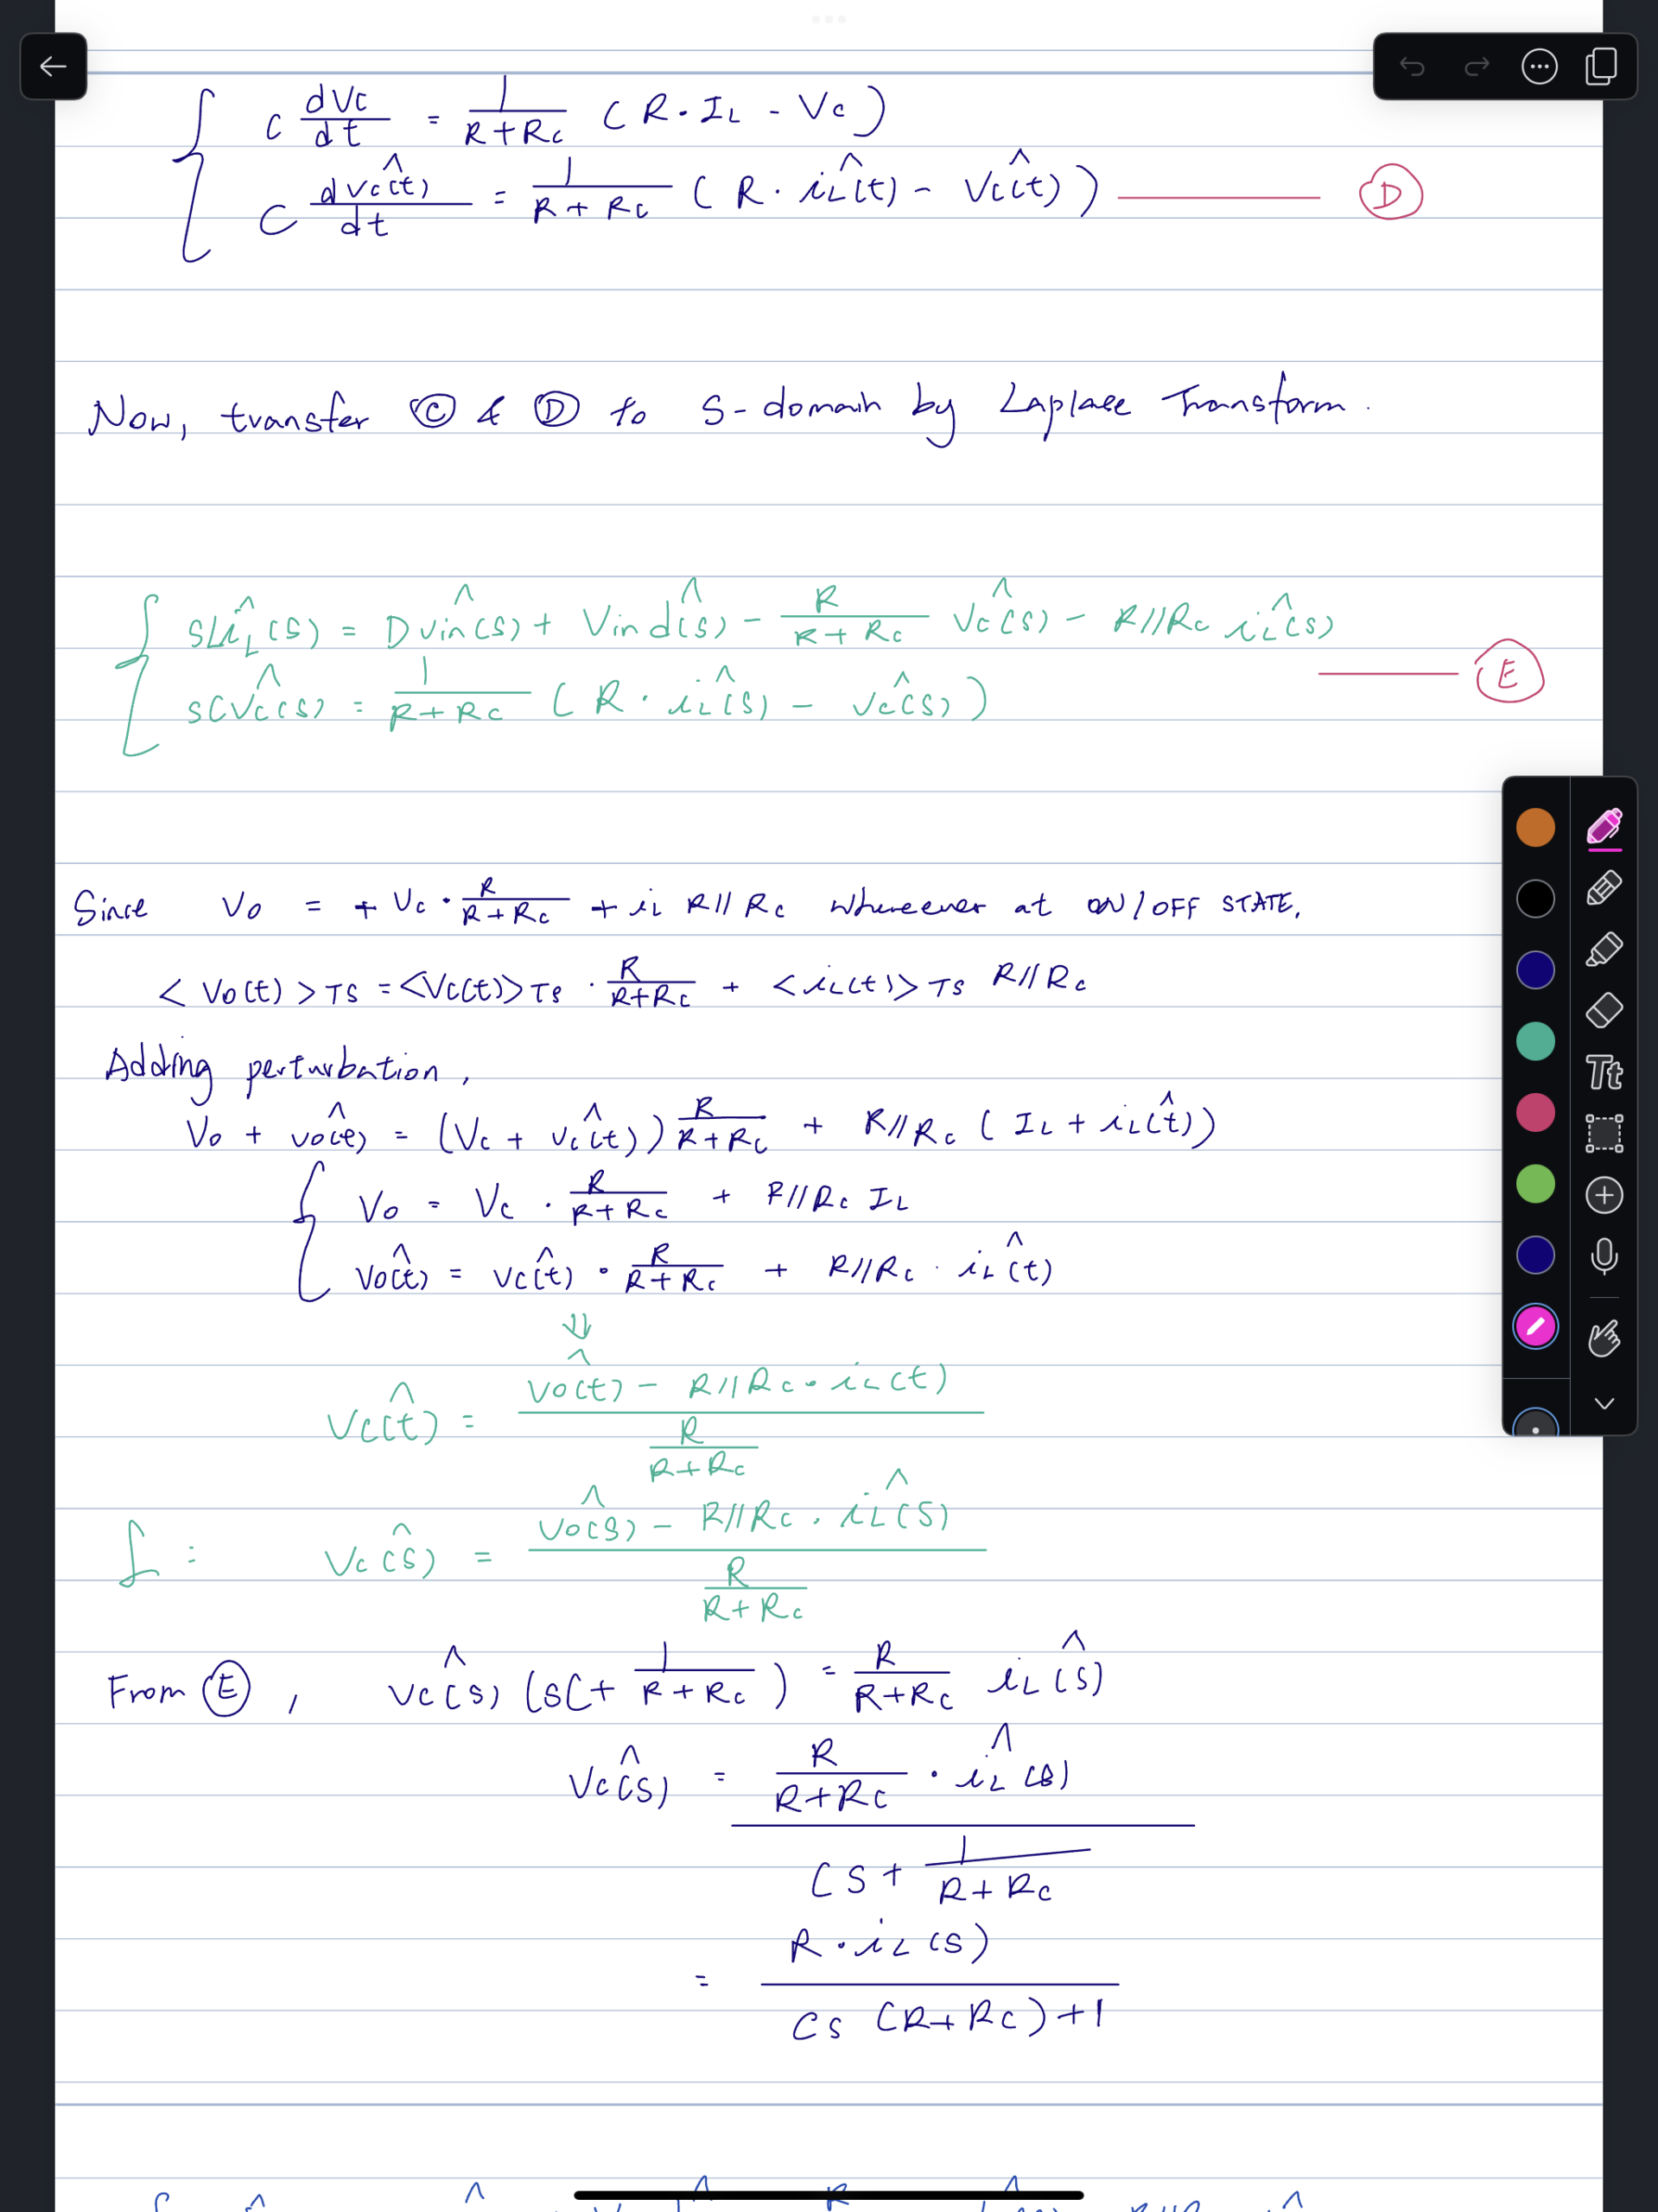 C dVc/dt = 1/(R+Rc) (R·IL - Vc)
C dv̂c(t)/dt = 1/(R+Rc) (R·îL(t) - v̂c(t)) —— Ⓓ
Now, transfer Ⓒ & Ⓓ to S-domain by Laplace Transform.
sLîL(s) = Dv̂in(s) + Vin d̂(s) - R/(R+Rc) v̂c(s) - R//Rc îL(s)
sCv̂c(s) = 1/(R+Rc) (R·îL(s) - v̂c(s)) —— Ⓔ
Since Vo = + Vc · R/(R+Rc) + iL R//Rc whereever at ON/OFF STATE,
<Vo(t)>TS = <Vc(t)>TS · R/(R+Rc) + <iL(t)>TS R//Rc
Adding perturbation,
Vo + v̂o(t) = (Vc + v̂c(t)) R/(R+Rc) + R//Rc (IL + îL(t))
Vo = Vc · R/(R+Rc) + R//Rc IL
v̂o(t) = v̂c(t) · R/(R+Rc) + R//Rc · îL(t)
⇓
v̂c(t) = (v̂o(t) - R//Rc · iL(t)) / (R/(R+Rc))
ℒ: v̂c(s) = (v̂o(s) - R//Rc · îL(s)) / (R/(R+Rc))
From Ⓔ, v̂c(s) (sC + 1/(R+Rc)) = R/(R+Rc) îL(s)
v̂c(s) = (R/(R+Rc) · îL(s)) / (Cs + 1/(R+Rc))
= R·iL(s) / (Cs (R+Rc)+1)